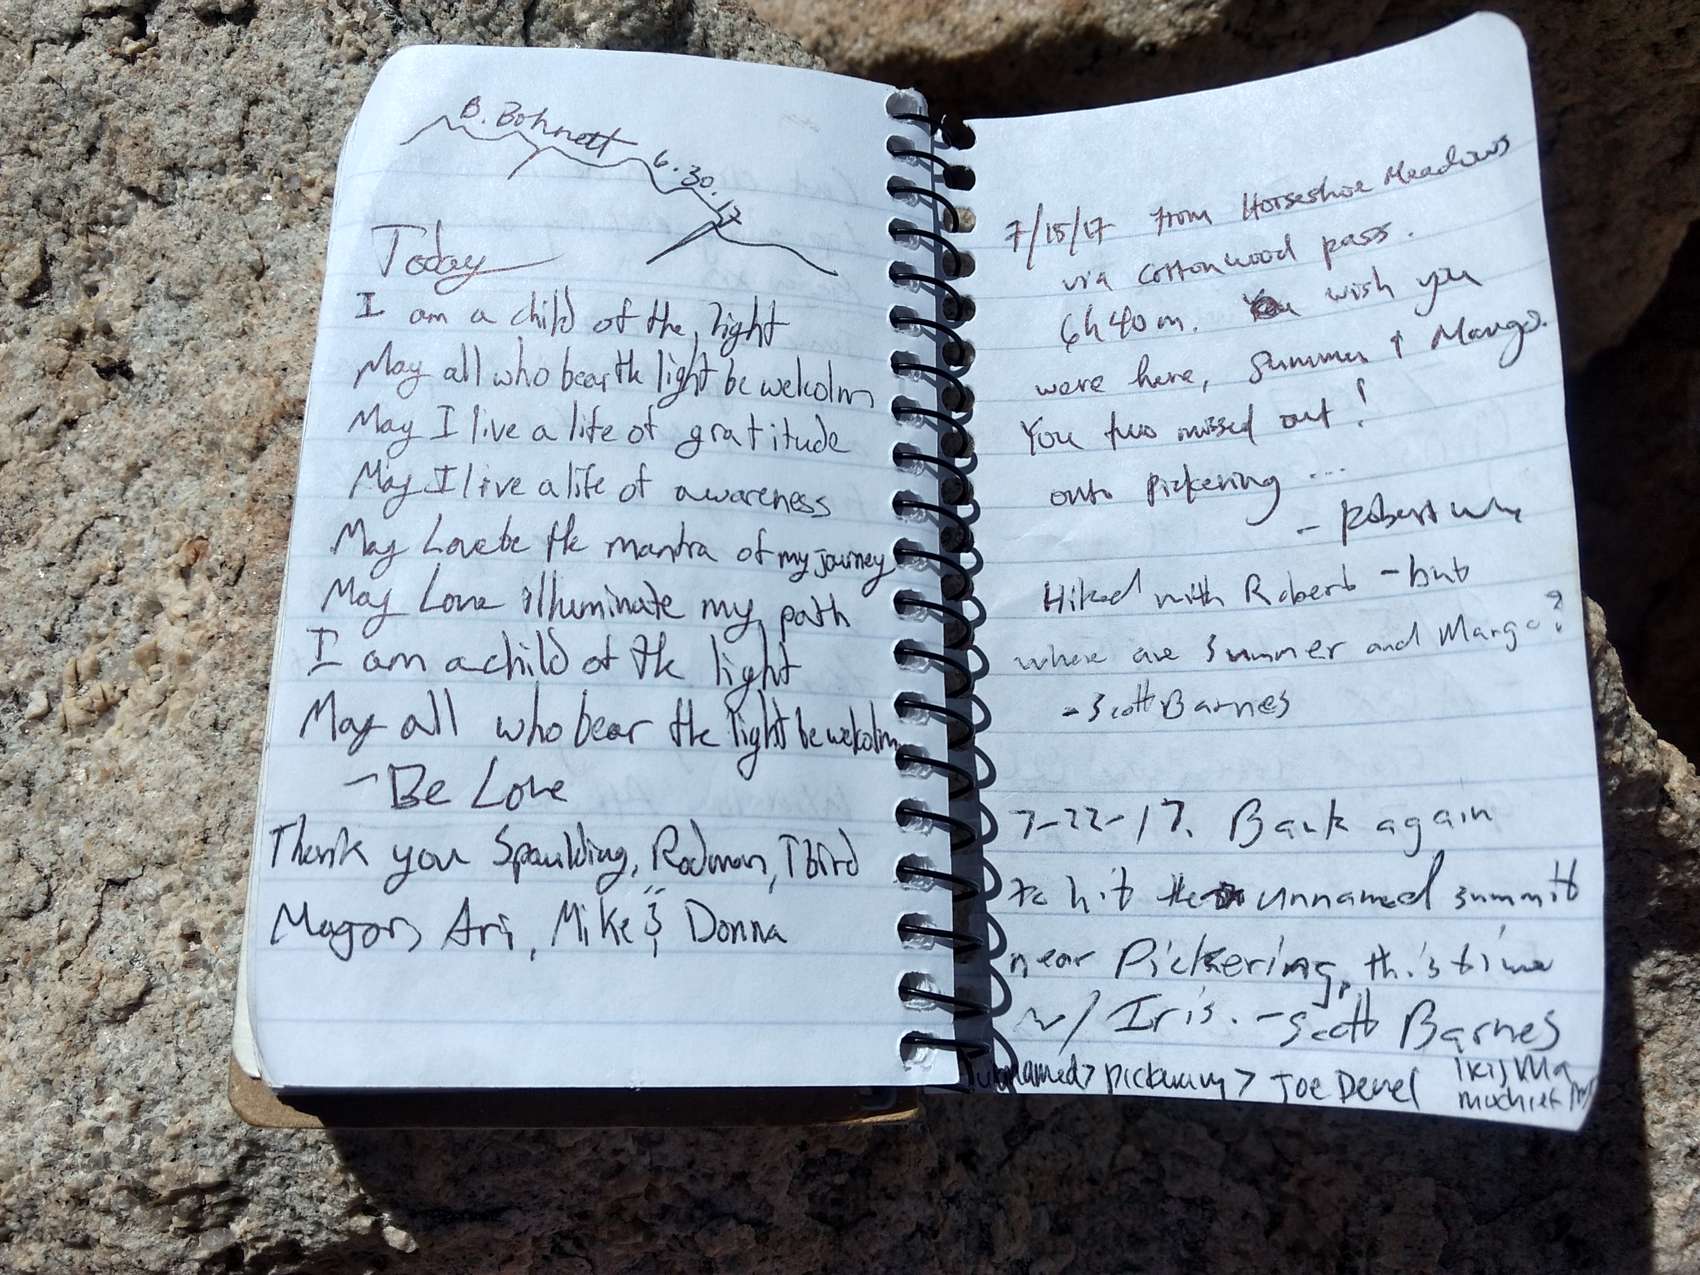 B. Bohnett 6.30.17
Today
I am a child of the light
May all who bear the light be welcolm
May I live a life of gratitude
May I live a life of awareness
May Love be the mantra of my journey
May Love illuminate my path
I am a child of the light
May all who bear the light be welcolm
- Be Love
Thank you Spaulding, Rodman, Tbird
Magors, Ari, Mike & Donna
7/15/17 from Horseshoe Meadows
via cottonwood pass.
6h 40m. wish you
were here, Summer & Margo.
You two missed out!
onto Pickering ...
- Robert
Hiked with Robert - but
where are Summer and Margo?
- Scott Barnes
7-22-17. Back again
to hit unnamed summit
near Pickering, this time
w/ Iris. - Scott Barnes
unnamed > pickering > Joe Devel
Iris Ma